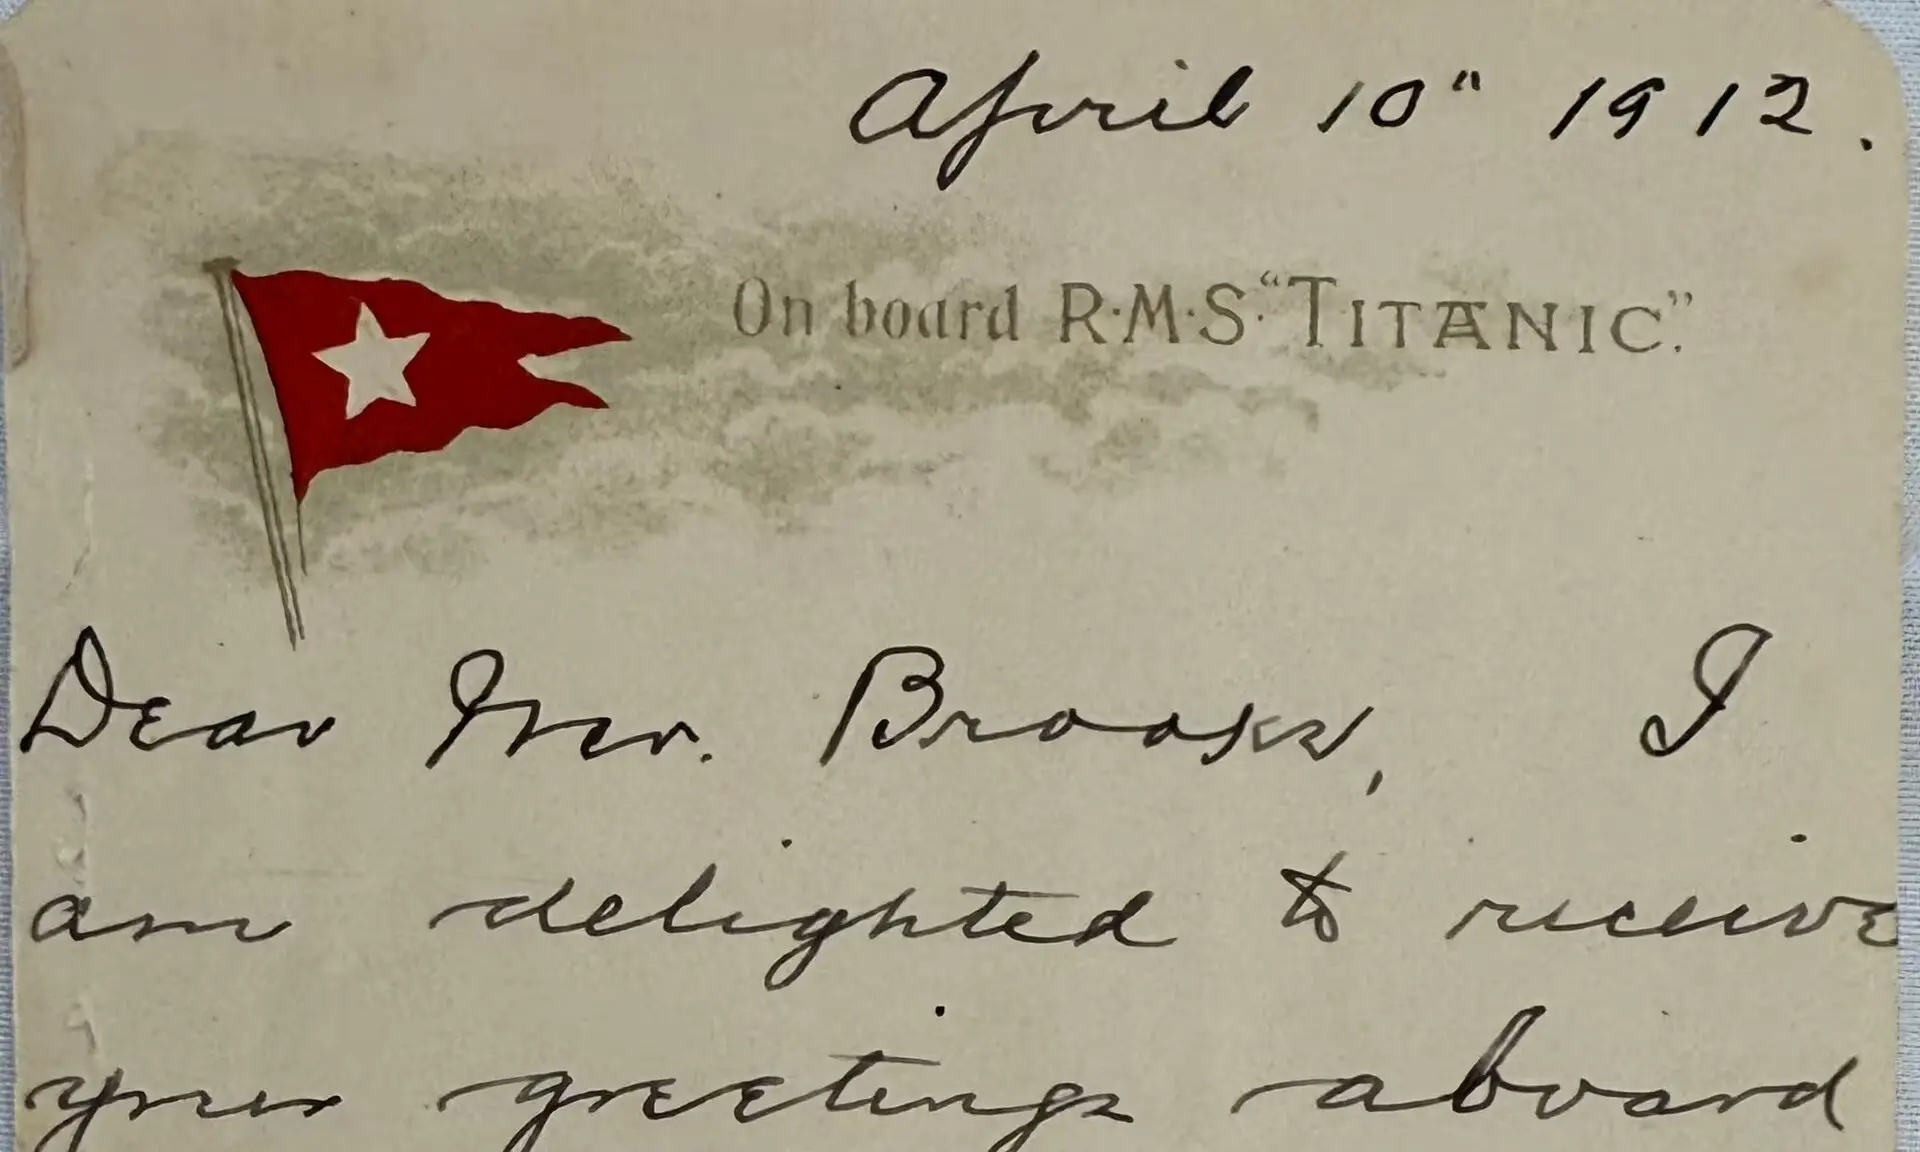 April 10" 1912.
On board R·M·S· "TITANIC."
Dear Mr. Brooks, I
am delighted to receive
your greetings aboard